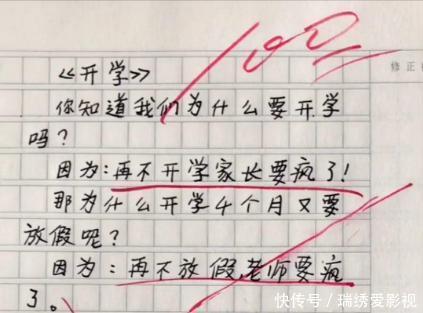 100
修正
《开学》
你知道我们为什么要开学
吗？
因为：再不开学家长要疯了！
那为什么开学4个月又要
放假呢？
因为：再不放假，老师要疯
了。
快传号/瑞绣爱影视